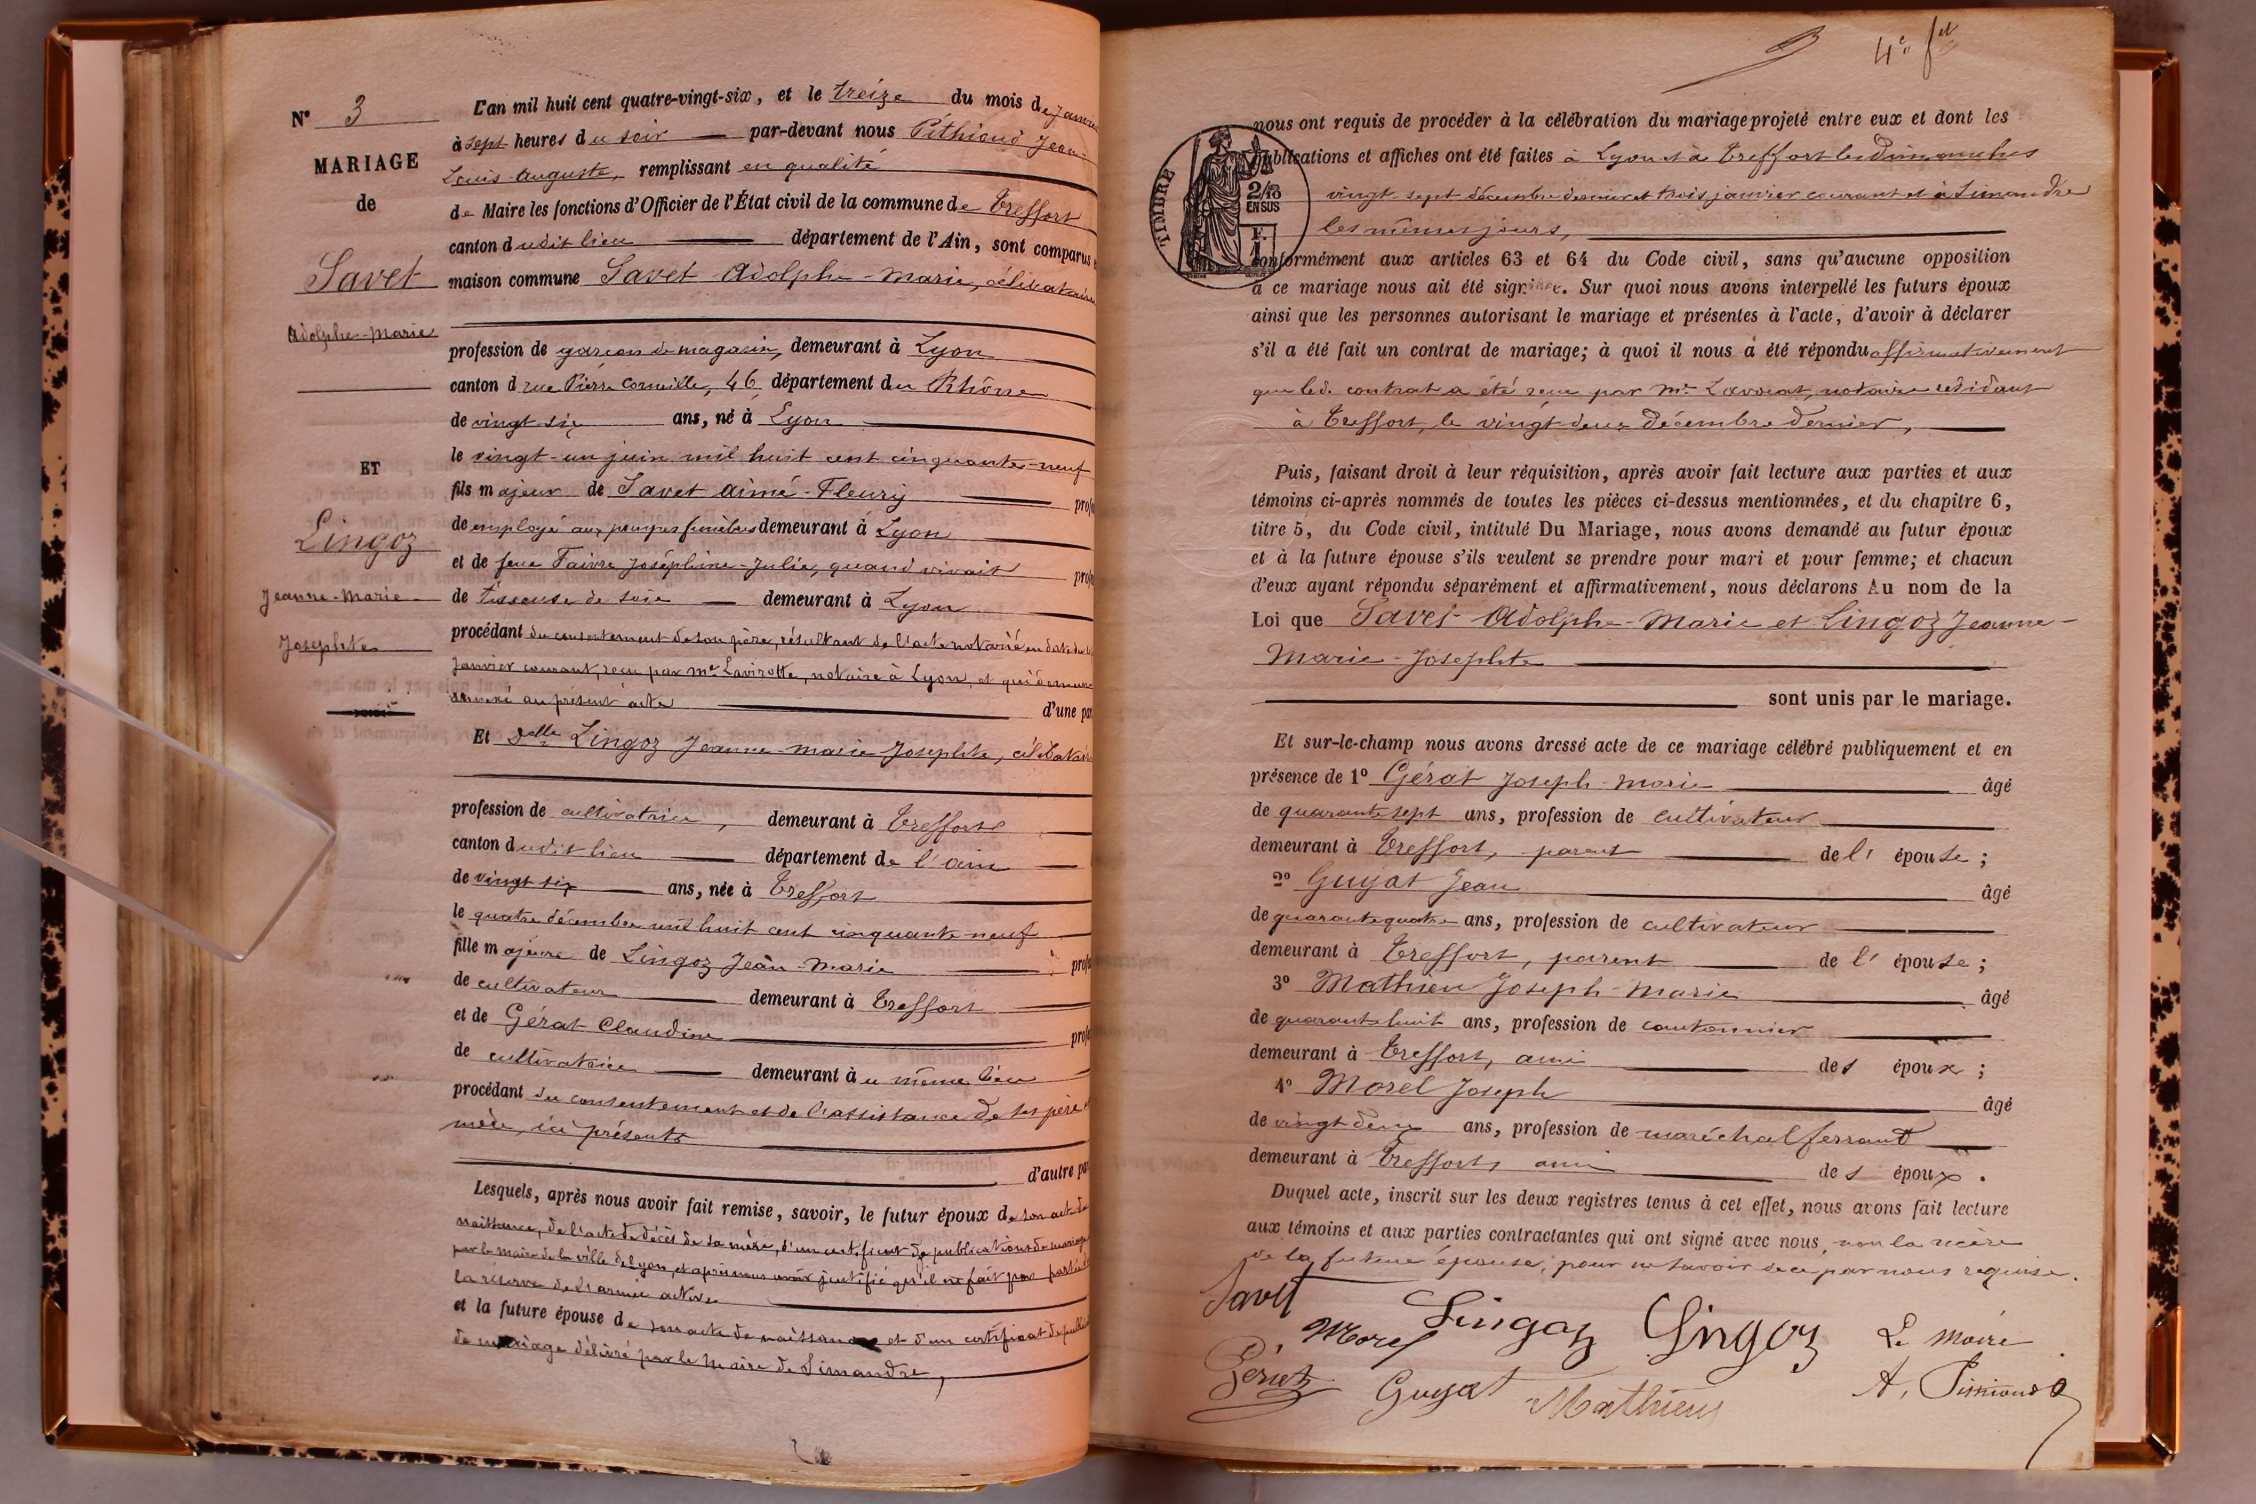 N° 3
MARIAGE
de
Savet
Adolphe-Marie
ET
Lingoz
Jeanne-Marie
Josephte
L'an mil huit cent quatre-vingt-six, et le treize du mois de
à sept heures du soir par-devant nous Pithioud Jean-
Louis-Auguste, remplissant en qualité
de Maire les fonctions d'Officier de l'État civil de la commune de Treffort
canton dudit lieu département de l'Ain, sont comparus
maison commune Savet Adolphe-Marie, célibataire
profession de garçon de magasin, demeurant à Lyon
canton d rue Pierre Corneille, 46 département du Rhône
de vingt six ans, né à Lyon
le vingt-un juin mil huit cent cinquante-neuf
fils majeur de Savet Aimé-Fleury
de employé aux pompes funèbres demeurant à Lyon
et de feue Faivre Joséphine-Julie, quand vivait
de tisseuse de soie demeurant à Lyon
procédant du consentement de son père, résultant de l'acte notarié en date du
janvier courant, reçu par Me Lavirotte, notaire à Lyon, et qui demeure
annexé au présent acte d'une par
Et Delle Lingoz Jeanne-Marie Josephte, célibataire
profession de cultivatrice, demeurant à Treffort
canton dudit lieu département de l'Ain
de vingt six ans, née à Treffort
le quatre décembre mil huit cent cinquante-neuf
fille majeure de Lingoz Jean-Marie
de cultivateur demeurant à Treffort
et de Gérat Claudine
de cultivatrice demeurant à u même lieu
procédant du consentement et de l'assistance de ses père et
mère, ici présents
d'autre par
Lesquels, après nous avoir fait remise, savoir, le futur époux de son acte de
naissance, de l'acte de décès de sa mère, d'un certificat de publications de mariage
par le Maire de la ville de Lyon, et après nous avoir justifié qu'il ne fait pas partie de
la réserve de l'armée active
et la future épouse de son acte de naissance et d'un certificat de
de mariage délivré par le Maire de Simandre,
4e fet
TIMBRE
2/10
EN SUS
F.
1
nous ont requis de procéder à la célébration du mariage projeté entre eux et dont les
publications et affiches ont été faites à Lyon et à Treffort les Dimanches
vingt-sept décembre dernier et trois janvier courant et à Simandre
les mêmes jours,
conformément aux articles 63 et 64 du Code civil, sans qu'aucune opposition
à ce mariage nous ait été signifiée. Sur quoi nous avons interpellé les futurs époux
ainsi que les personnes autorisant le mariage et présentes à l'acte, d'avoir à déclarer
s'il a été fait un contrat de mariage; à quoi il nous a été répondu affirmativement
que led. contrat a été reçu par Me Lavorat, notaire résidant
à Treffort, le vingt-deux Décembre dernier,
Puis, faisant droit à leur réquisition, après avoir fait lecture aux parties et aux
témoins ci-après nommés de toutes les pièces ci-dessus mentionnées, et du chapitre 6,
titre 5, du Code civil, intitulé Du Mariage, nous avons demandé au futur époux
et à la future épouse s'ils veulent se prendre pour mari et pour femme; et chacun
d'eux ayant répondu séparément et affirmativement, nous déclarons Au nom de la
Loi que Savet Adolphe-Marie et Lingoz Jeanne-
Marie-Josephte
sont unis par le mariage.
Et sur-le-champ nous avons dressé acte de ce mariage célébré publiquement et en
présence de 1° Gérat Joseph-Marie âgé
de quarante sept ans, profession de cultivateur
demeurant à Treffort, parent de l' épouse;
2° Guyat Jean âgé
de quarante quatre ans, profession de cultivateur
demeurant à Treffort, parent de l' épouse;
3° Mathieu Joseph-Marie âgé
de quarante huit ans, profession de cantonnier
demeurant à Treffort, ami des époux;
4° Morel Joseph âgé
de vingt deux ans, profession de maréchal ferrant
demeurant à Treffort, ami des époux.
Duquel acte, inscrit sur les deux registres tenus à cet effet, nous avons fait lecture
aux témoins et aux parties contractantes qui ont signé avec nous, non la mère
de la future épouse, pour ne savoir de ce par nous requise.
Savet
Morel
Lingoz
Lingoz
Le Maire
Guyat
Mathieu